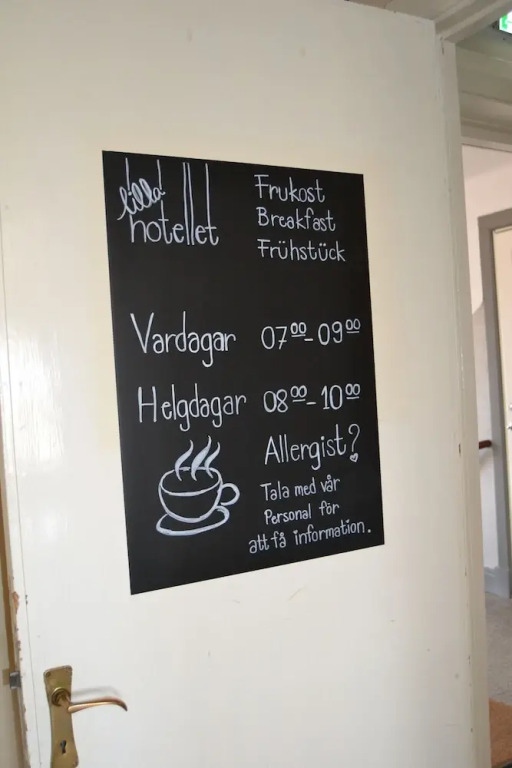 lilla!
hotellet
Frukost
Breakfast
Frühstück
Vardagar 07⁰⁰-09⁰⁰
Helgdagar 08⁰⁰-10⁰⁰
Allergist?
Tala med vår
Personal för
att få information.